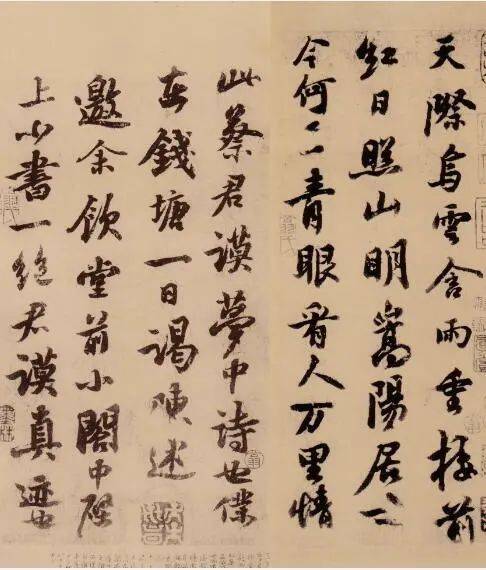 天際烏雲含雨重樓前
紅日照山明嵩陽居士
今何在青眼看人万里情
此蔡君謨夢中詩也僕
在錢塘一日謁陳述
邀余飲堂前小閣中壁
上小書一絕君謨真迹也